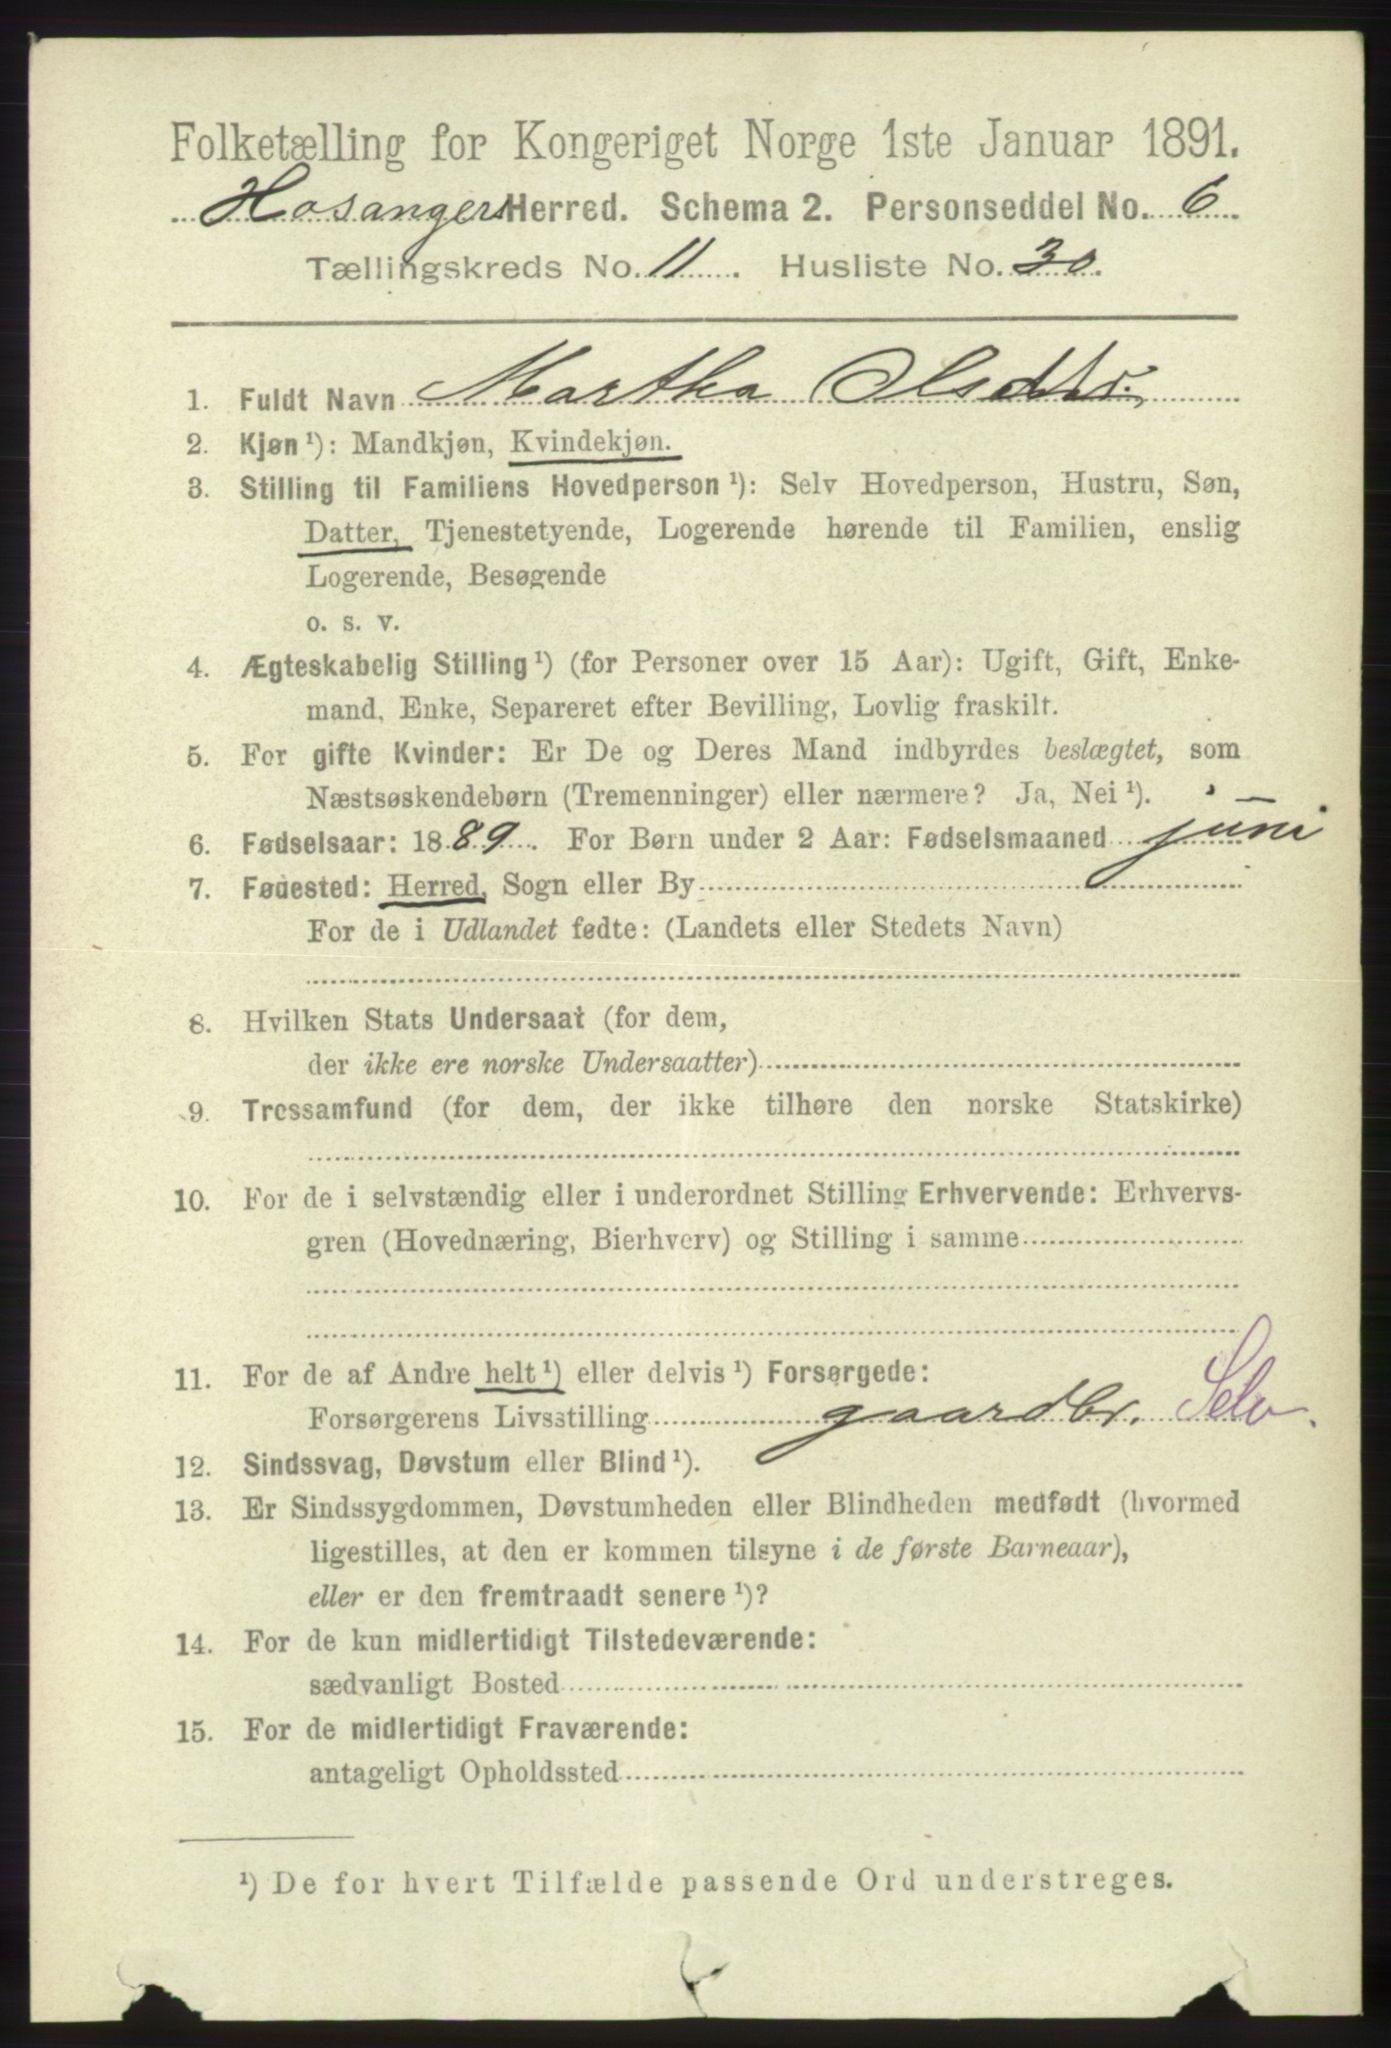 Folketælling for Kongeriget Norge 1ste Januar 1891.
Hosangers Herred. Schema 2. Personseddel No. 6
Tællingskreds No. 11. Husliste No. 30.
1. Fuldt Navn Martha Olsdtr.
2. Kjøn ¹): Mandkjøn, Kvindekjøn.
3. Stilling til Familiens Hovedperson ¹): Selv Hovedperson, Hustru, Søn,
Datter, Tjenestetyende, Logerende hørende til Familien, enslig
Logerende, Besøgende
o. s. v.
4. Ægteskabelig Stilling ¹) (for Personer over 15 Aar): Ugift, Gift, Enke-
mand, Enke, Separeret efter Bevilling, Lovlig fraskilt.
5. For gifte Kvinder: Er De og Deres Mand indbyrdes beslægtet, som
Næstsøskendebørn (Tremenninger) eller nærmere? Ja, Nei ¹).
6. Fødselsaar: 1889. For Børn under 2 Aar: Fødselsmaaned juni
7. Fødested: Herred, Sogn eller By
For de i Udlandet fødte: (Landets eller Stedets Navn)
8. Hvilken Stats Undersaat (for dem,
der ikke ere norske Undersaatter)
9. Trossamfund (for dem, der ikke tilhøre den norske Statskirke)
10. For de i selvstændig eller i underordnet Stilling Erhvervende: Erhvervs-
gren (Hovednæring, Bierhverv) og Stilling i samme
11. For de af Andre helt ¹) eller delvis ¹) Forsørgede:
Forsørgerens Livsstilling gaardbr. Selv.
12. Sindssvag, Døvstum eller Blind ¹).
13. Er Sindssygdommen, Døvstumheden eller Blindheden medfødt (hvormed
ligestilles, at den er kommen tilsyne i de første Barneaar),
eller er den fremtraadt senere ¹)?
14. For de kun midlertidigt Tilstedeværende:
sædvanligt Bosted
15. For de midlertidigt Fraværende:
antageligt Opholdssted
¹) De for hvert Tilfælde passende Ord understreges.